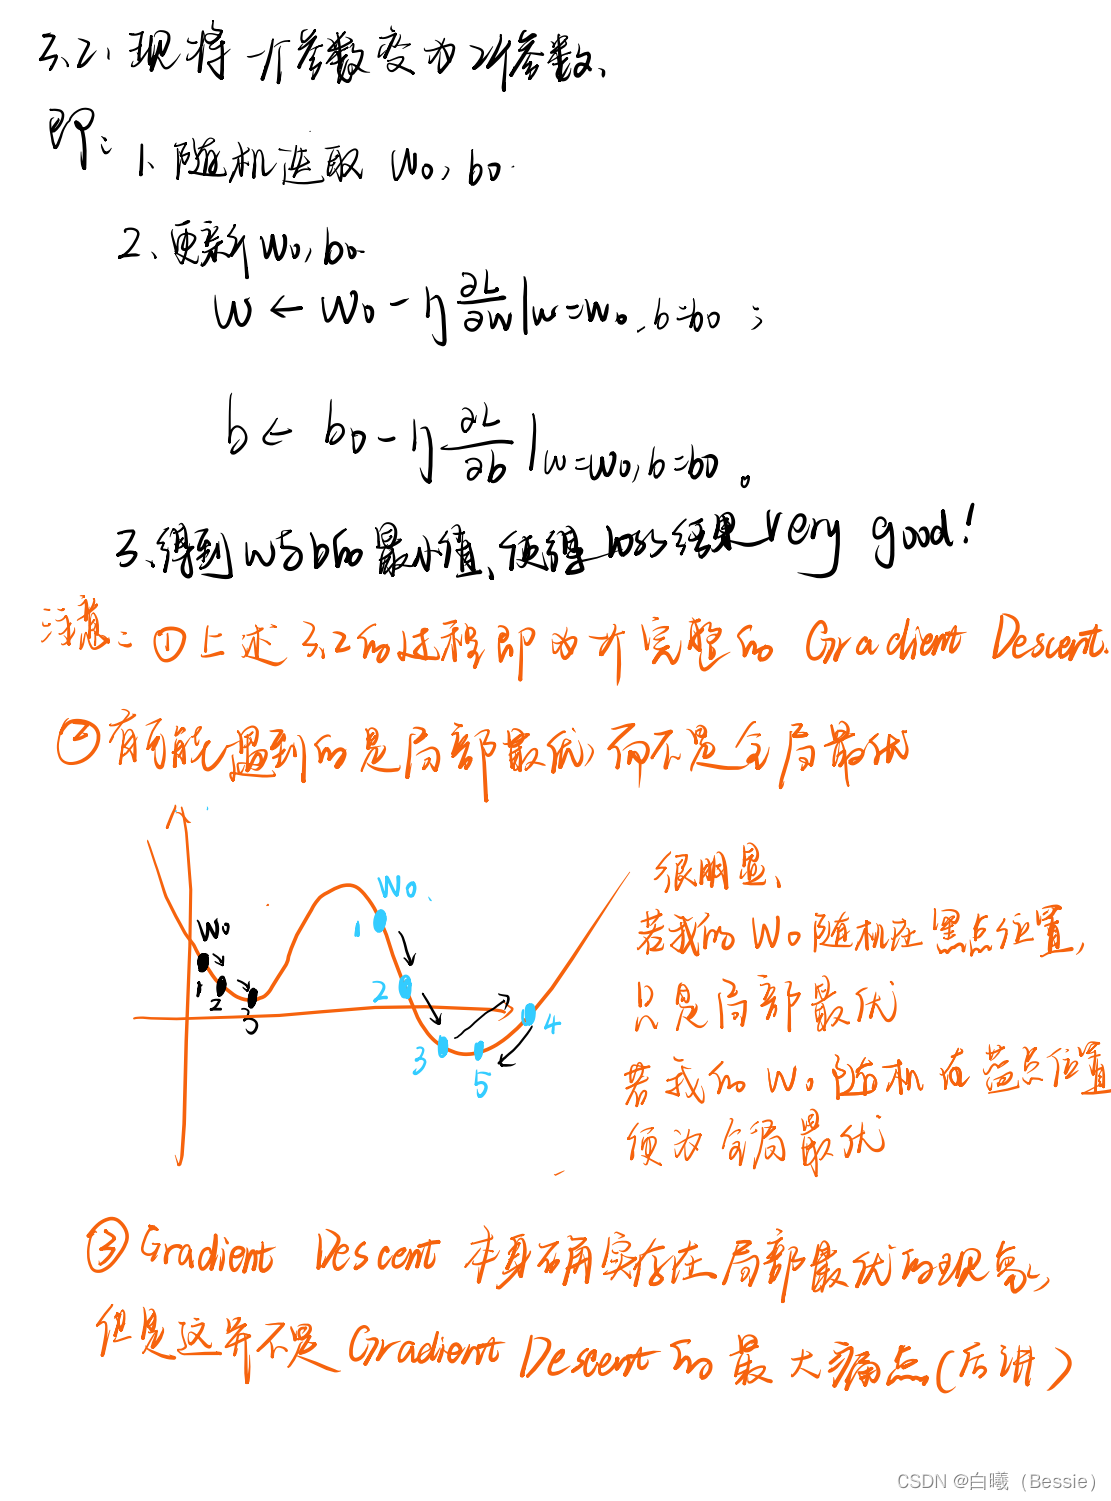 3.2、现将一个参数变为2个参数、
即：1、随机选取 W0, b0.
2、更新W0, b0.
W ← W0 - η ∂L/∂w |w=w0, b=b0 ;
b ← b0 - η ∂L/∂b |w=w0, b=b0 。
3、得到w与b的最小值、使得loss结果very good!
注意：①上述3.2的过程即为一个完整的 Gradient Descent.
②有可能遇到的是局部最优，而不是全局最优
很明显、
若我的W0随机在黑点位置，
只是局部最优
若我的W0随机在蓝点位置
便为全局最优
W0
1
2
3
W0
1
2
3
4
5
③Gradient Descent 本身确实存在局部最优的现象，
但是这并不是 Gradient Descent 的最大痛点(后讲)
CSDN @白曦（Bessie）